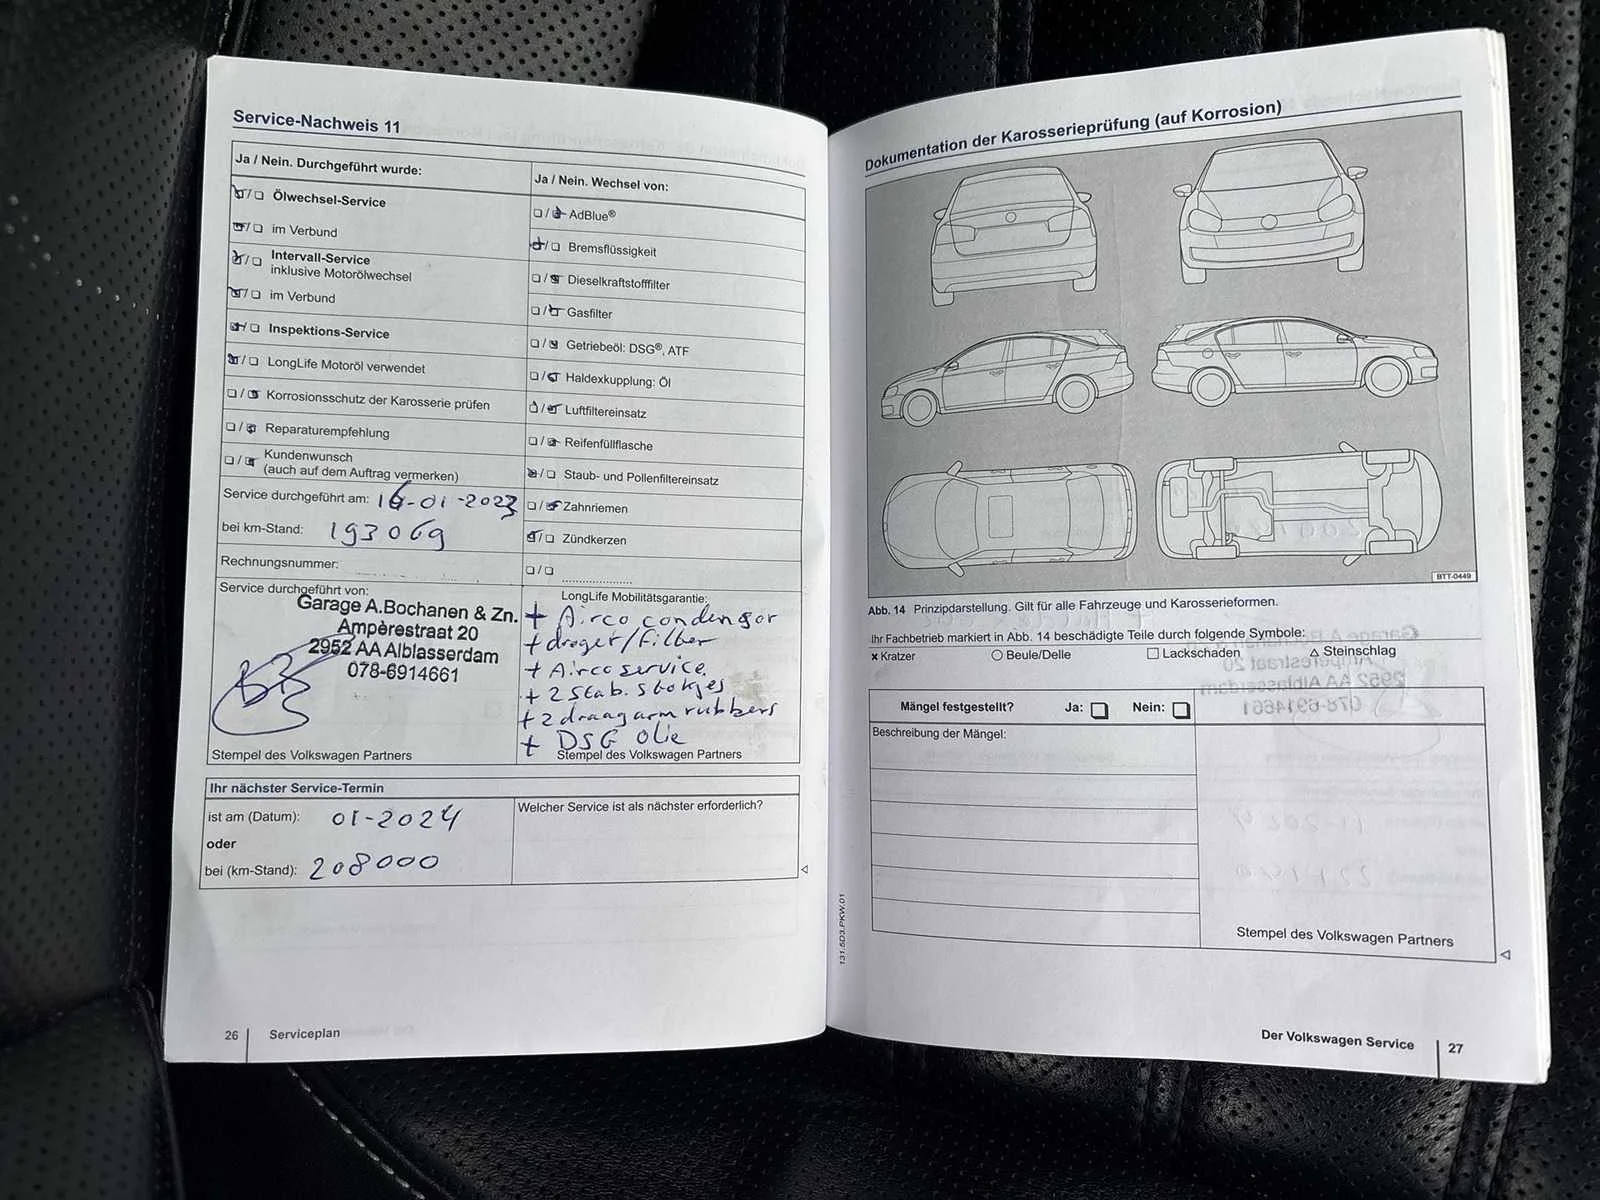 Service-Nachweis 11
Ja / Nein. Durchgeführt wurde:
Ölwechsel-Service
im Verbund
Intervall-Service
inklusive Motorölwechsel
im Verbund
Inspektions-Service
LongLife Motoröl verwendet
Korrosionsschutz der Karosserie prüfen
Reparaturempfehlung
Kundenwunsch
(auch auf dem Auftrag vermerken)
Service durchgeführt am: 16-01-2023
bei km-Stand: 193069
Rechnungsnummer:
Service durchgeführt von:
Garage A.Bochanen & Zn.
Ampèrestraat 20
2952 AA Alblasserdam
078-6914661
Stempel des Volkswagen Partners
Ja / Nein. Wechsel von:
AdBlue®
Bremsflüssigkeit
Dieselkraftstofffilter
Gasfilter
Getriebeöl: DSG®, ATF
Haldexkupplung: Öl
Luftfiltereinsatz
Reifenfüllflasche
Staub- und Pollenfiltereinsatz
Zahnriemen
Zündkerzen
LongLife Mobilitätsgarantie:
+ Airco condensor
+ droger/filter
+ Airco service
+ 2 stab. stokjes
+ 2 draagarm rubbers
+ DSG olie
Stempel des Volkswagen Partners
Ihr nächster Service-Termin
ist am (Datum): 01-2024
oder
bei (km-Stand): 208000
Welcher Service ist als nächster erforderlich?
26 Serviceplan
Dokumentation der Karosserieprüfung (auf Korrosion)
BTT-0449
Abb. 14 Prinzipdarstellung. Gilt für alle Fahrzeuge und Karosserieformen.
Ihr Fachbetrieb markiert in Abb. 14 beschädigte Teile durch folgende Symbole:
× Kratzer ○ Beule/Delle □ Lackschaden △ Steinschlag
Mängel festgestellt? Ja: Nein:
Beschreibung der Mängel:
Stempel des Volkswagen Partners
131.5D3.PKW.01
Der Volkswagen Service 27